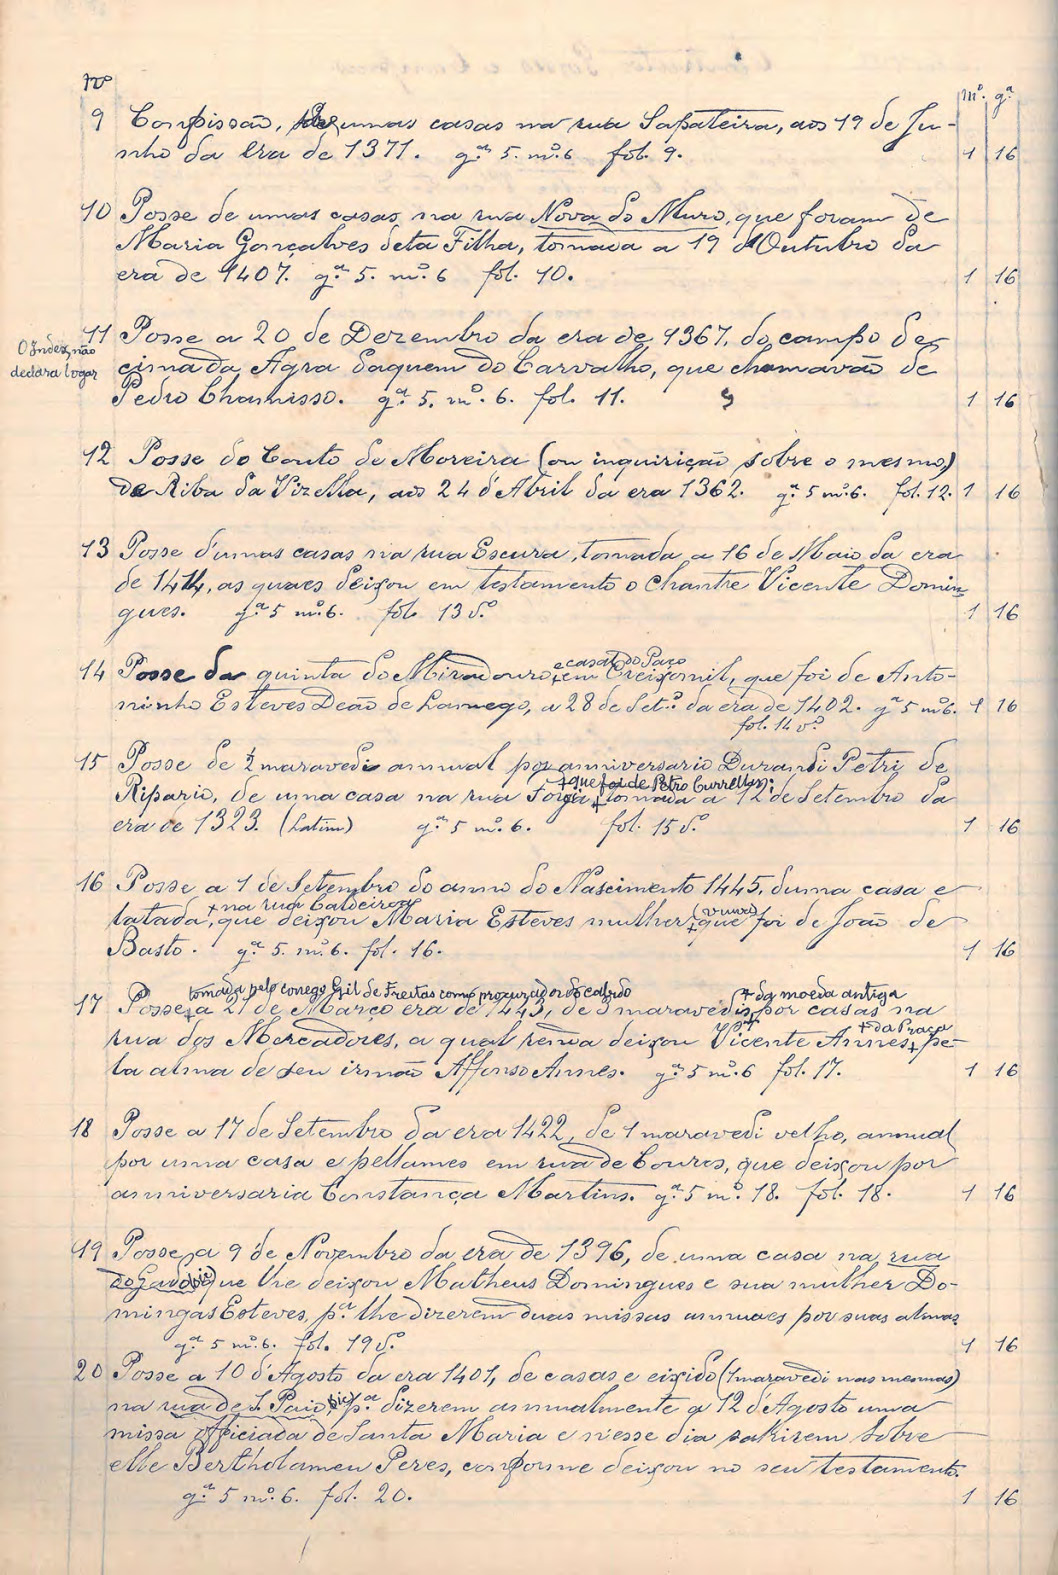 Nº
mº. gª.
9 Confissão, d'umas casas na rua Sapateira, aos 19 de Ju-
nho da Era de 1371. gª 5. mº. 6 fol. 9. 1 16
10 Posse de umas casas na rua Nova do Muro, que foram de
Maria Gonçalves deta Filha, tomada a 19 d'Outubro da
era de 1407. gª 5. mº. 6 fol. 10. 1 16
11 Posse a 20 de Dezembro da era de 1367, do campo de
O Index não
declara logar
cima da Agra daquem do Carvalho, que chamavão de
Pedro Chamisso. gª. 5. mº. 6. fol. 11. 1 16
12 Posse do Couto de Moreira (ou inquirição sobre o mesmo)
de Riba da Vizella, aos 24 d'Abril da era 1362. gª. 5 mº. 6. fol. 12. 1 16
13 Posse d'umas casas na rua Escura, tomada a 16 de Maio da era
de 1414, as quaes deixou em testamento o Chantre Vicente Domin-
gues. gª 5 mº. 6. fol. 13 v.º 1 16
e casal do Paço
14 Posse da quinta do Miradouro + em Creixomil, que foi de Anto-
ninho Esteves Deão de Lamego, a 28 de Set.º da era de 1402. gª 5 mº 6. 1 16
fol. 14 v.º
15 Posse de ½ maravedi annual por anniversario Durandi Petri de
+ que foi de Petro Currellas
Ripario, de uma casa na rua + tomada a 12 de Setembro da
era de 1323. (Latim) gª 5 mº. 6. fol. 15 v.º 1 16
16 Posse a 1 de Setembro do anno do Nascimento 1445, duma casa e
+ na rua Caldeiroa (viuva)
latada, que deixou Maria Esteves mulher + que foi de João de
Basto. gª. 5. mº. 6. fol. 16. 1 16
tomada pelo conego Gil de Freitas como procurador do cabido + da moeda antiga
17 Posse + a 21 de Março era de 1443, de 3 maravedis, por casas na
+ da Praça
rua dos Mercadores, a qual renda deixou Vicente Annes + pe-
la alma de seu irmão Affonso Annes. gª 5 mº. 6 fol. 17. 1 16
18 Posse a 17 de Setembro da era 1422, de 1 maravedi velho, annual
por uma casa e pellames em rua de Couros, que deixou por
anniversaria Constança Martins. gª. 5 mº. 18. fol. 18. 1 16
19 Posse, a 9 de Novembro da era de 1396, de uma casa na rua
do Gado (sic) que lhe deixou Matheus Domingues e sua mulher Do-
mingas Esteves, pª. lhe dizerem duas missas annuaes por suas almas.
gª 5 mº. 6. fol. 19 v.º 1 16
20 Posse a 10 d'Agosto da era 1401, de casas e eixido (1 maravedi nas mesmas)
na rua de S. Paio, (sic) pª. dizerem annualmente a 12 d'Agosto uma
missa officiada de Santa Maria e n'esse dia sahirem sobre
elle Bertholameu Peres, conforme deixou no seu testamento.
gª. 5 mº. 6. fol. 20. 1 16